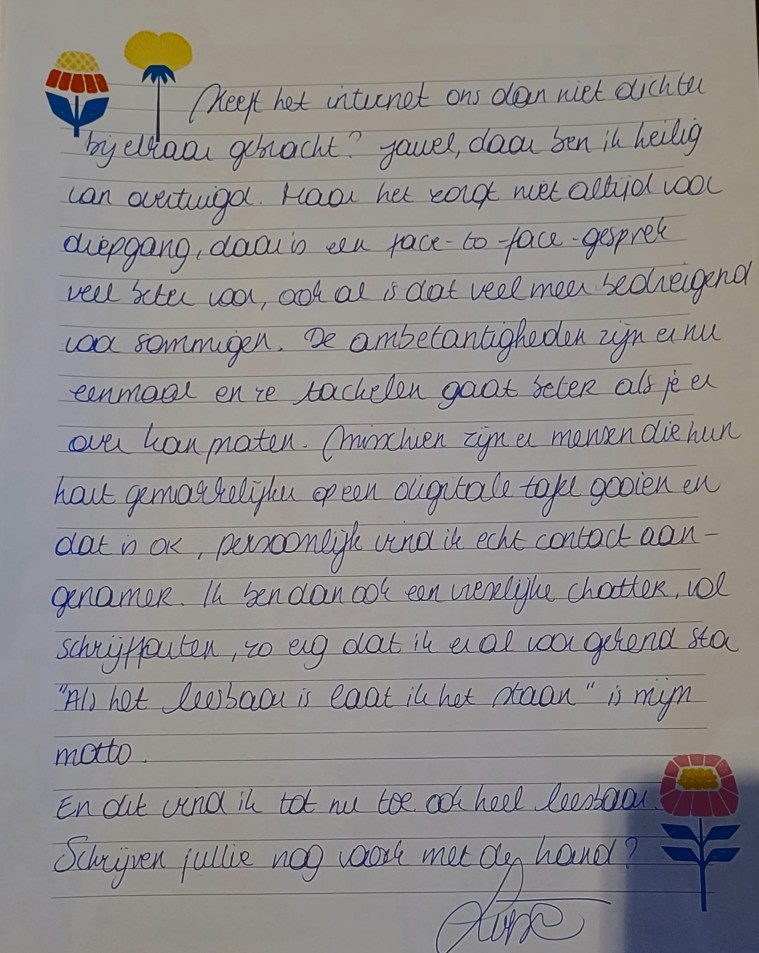 Heeft het internet ons dan niet dichter
bij elkaar gebracht? Jawel, daar ben ik heilig
van overtuigd. Maar het zorgt niet altijd voor
diepgang, daar is een face-to-face-gesprek
veel beter voor, ook al is dat veel meer bedreigend
voor sommigen. De ambetantigheden zijn er nu
eenmaal en ze tackelen gaat beter als je er
over kan praten. Misschien zijn er mensen die hun
hart gemakkelijker op een digitale tafel gooien en
dat is ok, persoonlijk vind ik echt contact aan-
genamer. Ik ben dan ook een vreselijke chatter, vol
schrijffouten, zo erg dat ik er al voor gekend sta
"Als het leesbaar is laat ik het staan" is mijn
motto.
En dit vind ik tot nu toe ook heel leesbaar.
Schrijven jullie nog vaak met de hand?